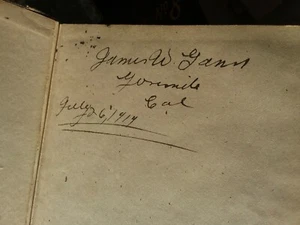 James W Gann
Yosemite
Cal
July 6, 1919